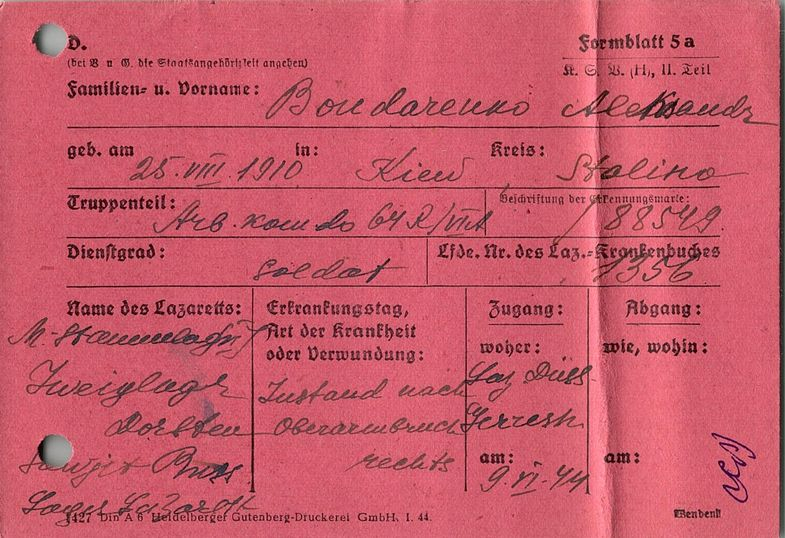 D. Formblatt 5a
(bei V u G. die Staatsangehörigkeit angeben) K. S. V. (H), II. Teil
Familien- u. Vorname: Bondarenko Aleksandr
geb. am 25. VIII. 1910 in: Kiew Kreis: Stalino
Truppenteil: Arb. komdo 64 R/VI A Beschriftung der Erkennungsmarke: 188549.
Dienstgrad: Soldat Lfde. Nr. des Laz.-Krankenbuches 1356
Name des Lazaretts: Erkrankungstag, Zugang: Abgang:
Art der Krankheit
oder Verwundung: woher: wie, wohin:
M-Stammlag VI J
Zweiglagr Zustand nach Laz Düss-
Dorsten Oberarmbruch Gerresh
rechts am: 9. VI. 44 am:
Lager Lazarett
1427 Din A 6 Heidelberger Gutenberg-Druckerei GmbH, I. 44. Wenden!